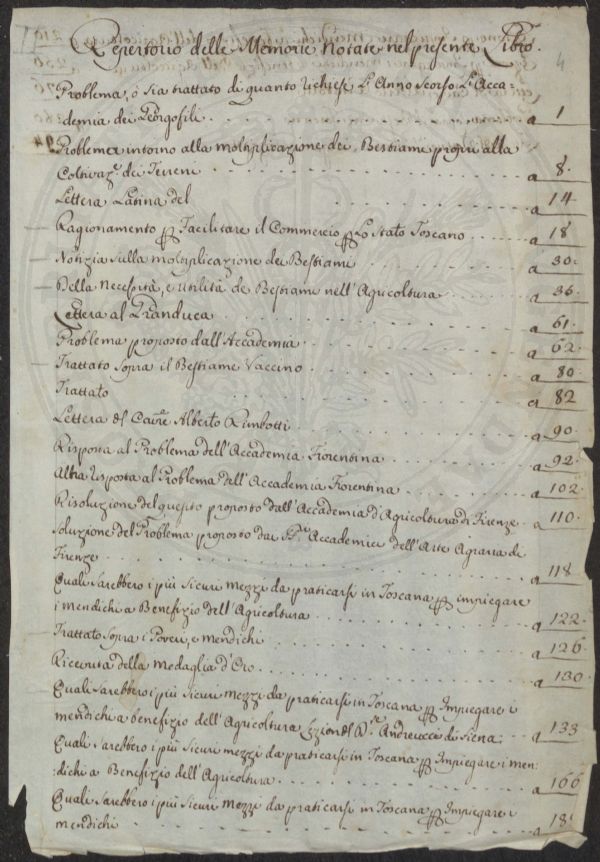 Repertorio delle Memorie Notate nel presente Libro.
4
Problema, ó Sia trattato di quanto richiese L'Anno Scorso L'Acca=
demia dei Georgofili. a 1
Problema intorno alla moltiplicazione dei Bestiame propri alla
Coltivaz.e de Terreni a 8.
Lettera Latina del a 14
Ragionamento Facilitare il Commercio Lo Stato Toscano a 18
Notizia Sulla moltiplicazione dei Bestiami a 30.
Della Necessità, e utilità de Bestiami nell'Agricoltura a 36.
Lettera al Granduca a 61.
Problema proposto dall'Accademia a 62.
Trattato Sopra il Bestiame Vaccino a 80.
Trattato a 82
Lettera del Cav.re Alberto Rimbotti a 90.
Risposta al Problema dell'Accademia Fiorentina a 92.
Altra risposta al Problema dell'Accademia Fiorentina a 102.
Risoluzione del quesito proposto dall'Accademia d'Agricoltura di Firenze a 110.
Soluzione del Problema proposto dai Accademici dell'Arte Agraria di
Firenze a 118
Quali Sarebbero i più Sicuri mezzi da praticarsi in Toscana impiegare
i mendichi a Benefizio dell'Agricoltura a 122.
Trattato Sopra i Poveri, e mendichi a 126
Ricevuta della medaglia d'Oro a 130
Quali Sarebbero i più Sicuri mezzi da praticarsi in Toscana Impiegare i
mendichi a benefizio dell'Agricoltura Andreucci di Siena a 133
Quali Sarebbero i più Sicuri mezzi da praticarsi in Toscana Impiegare i men:
dichi a Benefizio dell'Agricoltura a 166
Quali Sarebbero i più Sicuri mezzi da praticarsi in Toscana Impiegare i
mendichi a 18